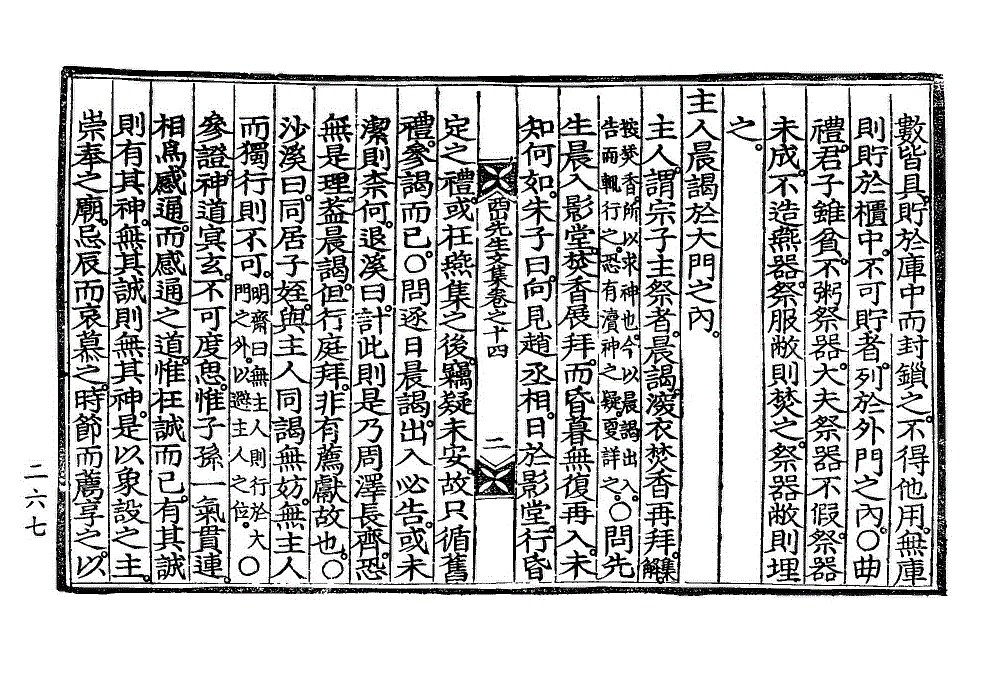 數皆具。貯於庫中而封鎖之。不得他用。無庫
則貯於櫃中。不可貯者。列於外門之內。○曲
禮。君子雖貧。不粥祭器。大夫祭器不假。祭器
未成。不造燕器。祭服敝則焚之。祭器敝則埋
之。
主人晨謁於大門之內。
主人。謂宗子主祭者。晨謁。深衣焚香再拜。集解
按焚香。所以求神也。今以晨謁出入。
告而輒行之。恐有瀆神之疑。更詳之。○問先
生晨入影堂。焚香展拜。而昏暮無復再入。未
知何如。朱子曰。向見趙丞相。日於影堂。行昏
先生文集卷之十四 二
定之禮。或在燕集之後。竊疑未安。故只循舊
禮。參謁而已。○問逐日晨謁。出入必告。或未
潔則柰何。退溪曰。計此則是乃周澤長齊。恐
無是理。葢晨謁。但行庭拜。非有薦獻故也。○
沙溪曰。同居子姪。與主人同謁無妨。無主人
而獨行則不可。明齋曰無主人則行於大
門之外。以避主人之位。○
參證。神道冥玄。不可度思。惟子孫一氣貫連。
相爲感通。而感通之道。惟在誠而已。有其誠
則有其神。無其誠則無其神。是以象設之主。
崇奉之廟。忌辰而哀慕之。時節而薦享之。以
二六七